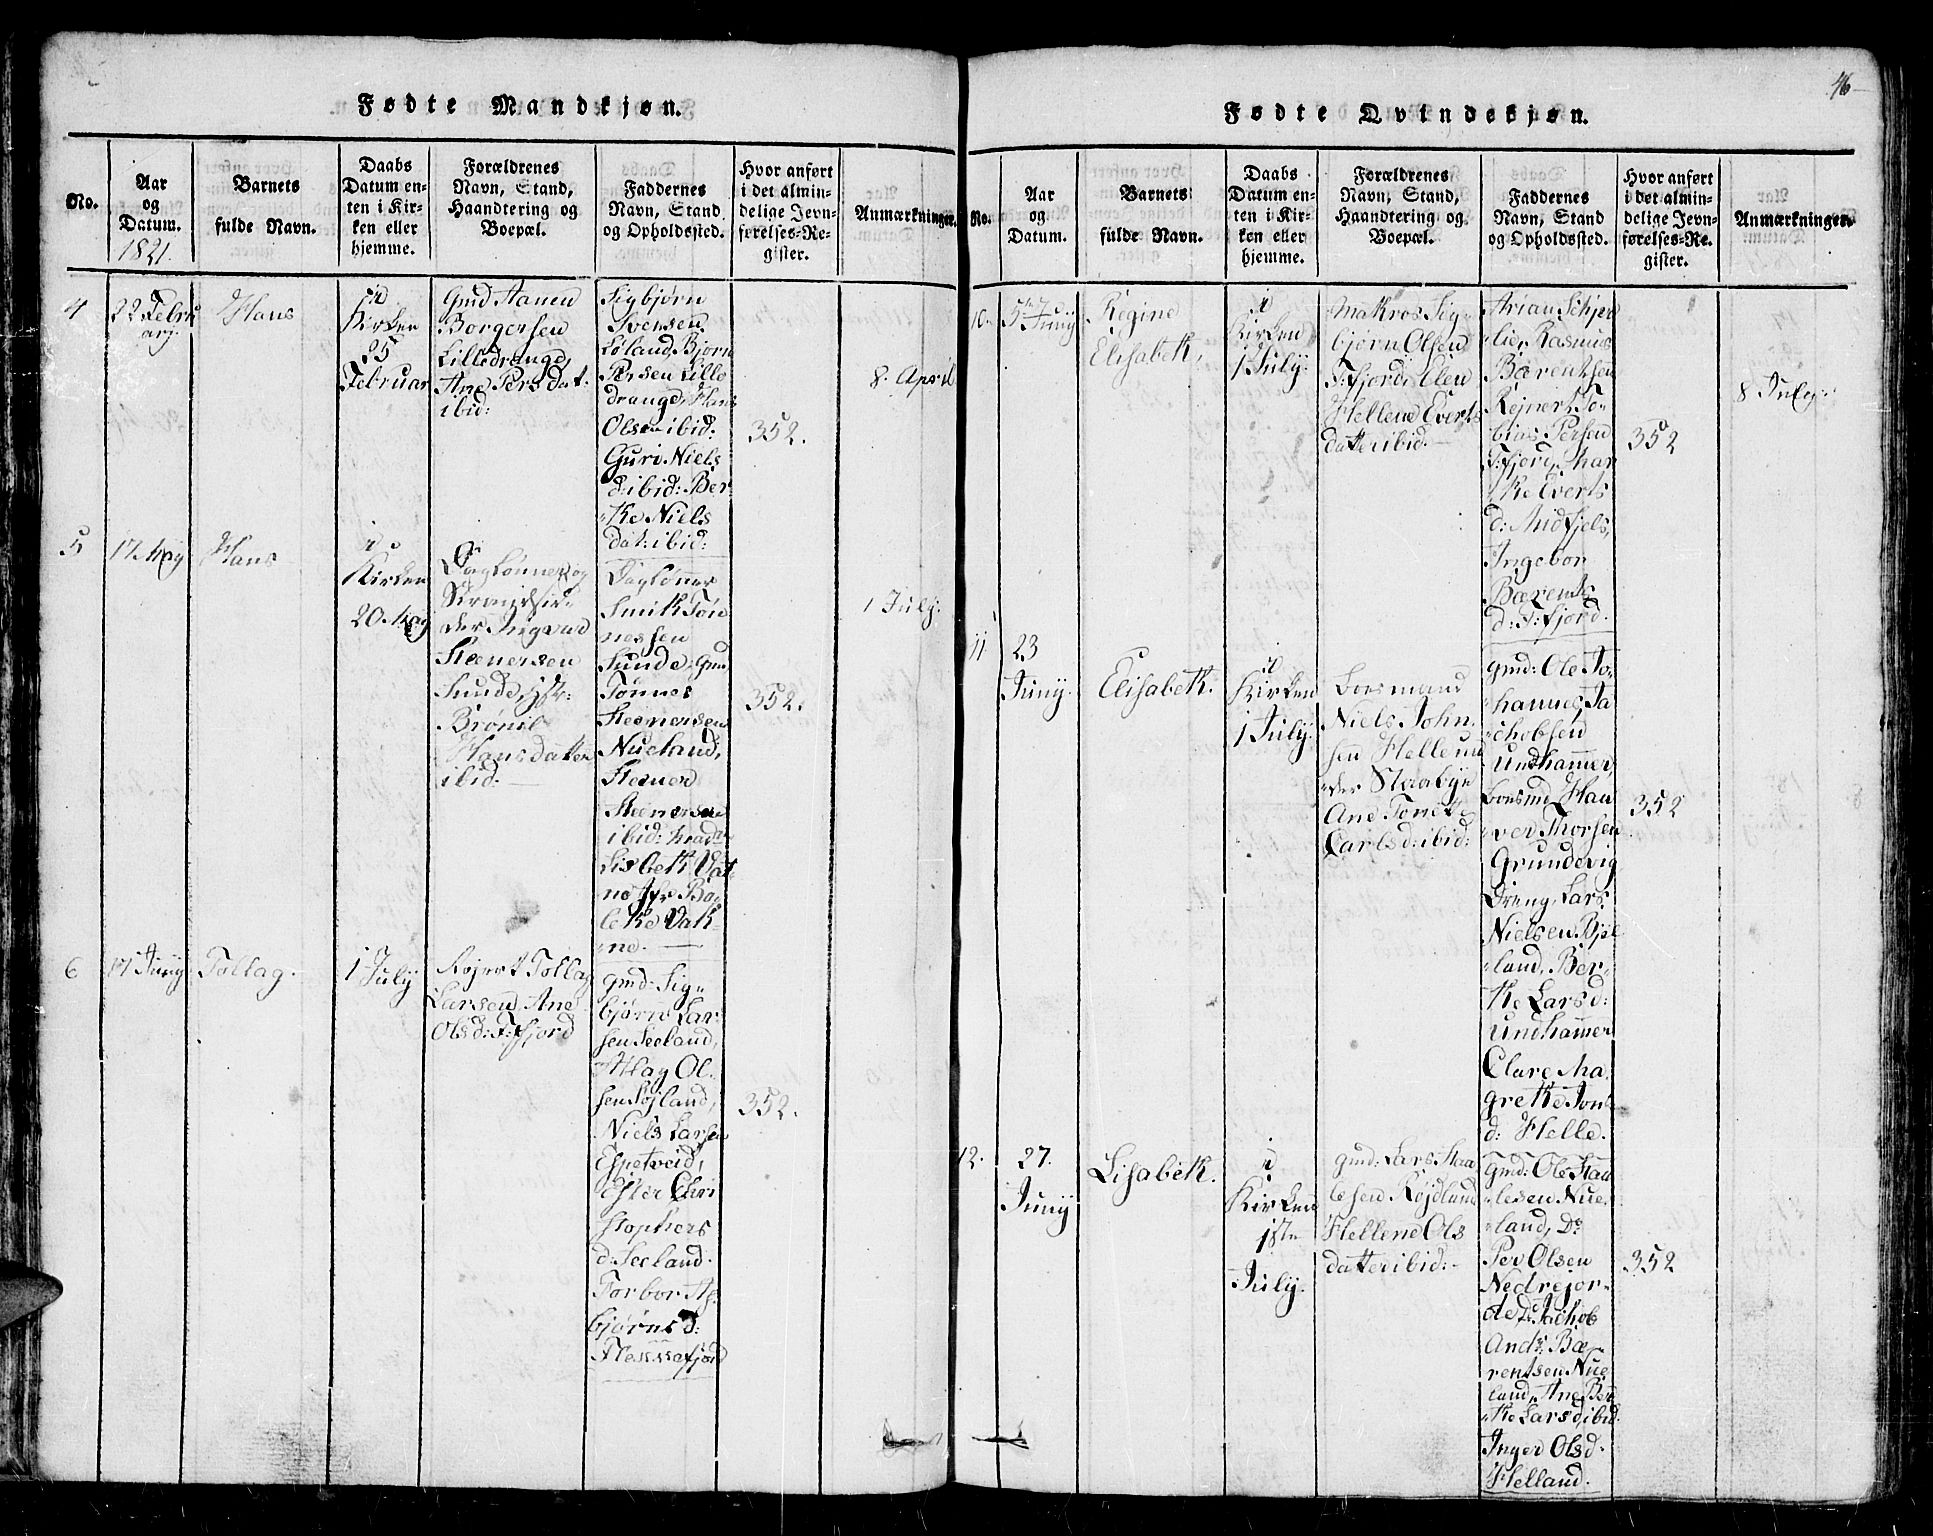 46
Fødte Mandkjøn.
No.
Aar
og
Datum.
1821.
Barnets
fulde Navn.
Daabs
Datum en-
ten i Kir-
ken eller
hjemme.
Forældrenes
Navn, Stand,
Haandtering og
Boepæl.
Faddernes
Navn, Stand
og Opholdssted.
Hvor anført
i det almin-
delige Jevn-
førelses-Re-
gister.
Anmærkninger.
4
22 Febru
arj.
Hans
i
Kirken
25
Februar
Gmd Aanen
Borgersen
Lilledrange,
Ane Pers dat:
ibid:
Sigbjørn
Svensen
Løland, Bjørn
Persen Lille
drange, Hans
Olsen ibid:
Guri Niels
d: ibid: Ber-
the Niels
dat: ibid:
352.
8. April
5
17. May
Hans
i
Kirken
20. May
Daglønner og
Strandsid-
der Ingvald
Steenersen
Sunde,
Brønil
Hans datter
ibid:
Daglønner
Smith Tøn
nessen
Sunde, Gmd
Tønnes
Steenersen
Nueland,
Steener
Steenersen
ibid:
Lisbeth Vat
ne,
Vath-
ne.
352.
1 July.
6
17 Juny
Tollag.
1 July
Rejert Tollag
Larsen, Ane
Olsd: F:fjord
gmd: Sig-
bjørn Lar-
sen Seeland,
Atlag Ol-
sen Søjland,
Niels Larsen
Espetveid,
Ester Chri
stophers
d: Seeland.
Torbor As-
bjørns d:
Flessefjord
352.
Fødte Qvindekjøn.
No.
Aar
og
Datum.
Barnets
fulde Navn.
Daabs
Datum en-
ten i Kir-
ken eller
hjemme.
Forældrenes
Navn, Stand,
Haandtering og
Boepæl.
Faddernes
Navn, Stand
og Opholdssted.
Hvor anført
i det almin-
delige Jevn-
førelses-Re-
gister.
Anmærkninger.
10.
5te Juny
Regine
Elisabeth,
i
Kirken
1 July.
Matros Sig-
bjørn Olsen
F:fjord, Elen
Hellene Everts
datter ibid:
Arian Schjer
lie, Rasmus
Bærentsen
Rejnert, To-
bias Persen
F:fjord, Mar
the Everts
d: Andfjels,
Ingebor
Bærents
d: F:fjord.
352
8 July.
11
23
Juny.
Elisabeth.
i
Kirken
1 July.
Loesmand
Niels John-
sen Helle un
der Staabye
Ane Tonette
Carlsd: ibid:
gmd: Ole Jo-
hannes Ja
chobsen
Undhammer,
Loesmd Hau
ver Thorsen
Grundevig
Dreng, Lars
Nielsen Bjel
land, Ber-
the Larsd:
Undhammer
Clare Ma-
grethe Jons
d: Helle.
352
12.
27.
Juny
Lisabeth.
i
Kirken
1ste
July.
gmd: Lars Staa
lesen Røjdland
Hellene Ols
datter ibid:
Gmd: Ole Staa
lesen Nue-
land, Do
Per Olsen
Nedrejor-
det, Jachob
Andr. Bæ-
rentsen Nue
land, Ane Ber
the Larsd, ibid.
Inger Olsd.
Helland.
352